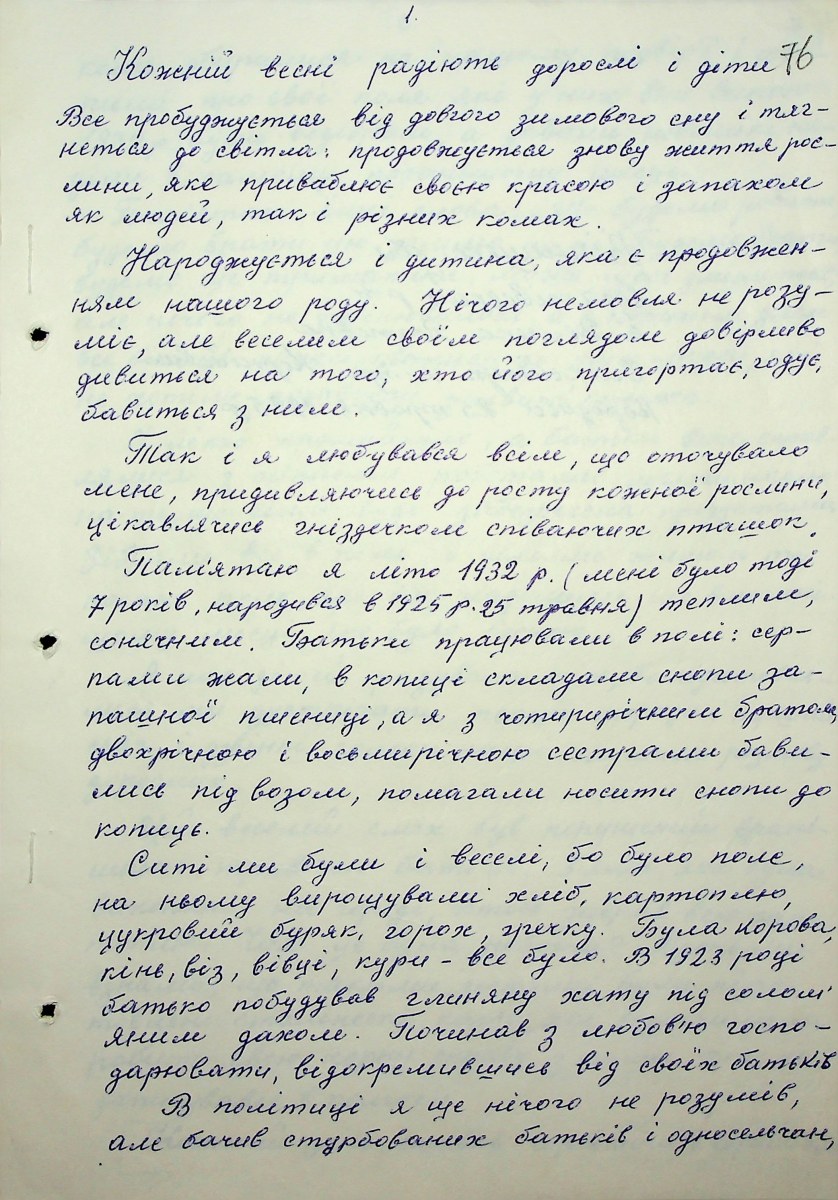 1.
76
Кожній весні радіють дорослі і діти
Все пробуджується від довгого зимового сну і тяг-
неться до світла: продовжується знову життя рос-
лини, яке приваблює своєю красою і запахом
як людей, так і різних комах.
Народжується і дитина, яка є продовжен-
ням нашого роду. Нічого немовля не розу-
міє, але веселим своїм поглядом довірливо
дивиться на того, хто його пригортає, годує,
бавиться з ним.
Так і я любувався всім, що оточувало
мене, придивляючись до росту кожної рослини,
цікавлячись гніздечком співаючих пташок.
Пам'ятаю я літо 1932 р. (мені було тоді
7 років, народився в 1925 р. 25 травня) теплим,
сонячним. Батьки працювали в полі: сер-
пами жали, в копиці складали снопи за-
пашної пшениці, а я з чотирирічним братом,
двохрічною і восьмирічною сестрами бави-
лись під возом, помагали носити снопи до
копиць.
Ситі ми були і веселі, бо було поле,
на ньому вирощували хліб, картоплю,
цукровий буряк, горох, гречку. Була корова,
кінь, віз, вівці, кури - все було. В 1923 році
батько побудував глиняну хату під солом'
яним дахом. Починав з любов'ю госпо-
дарювати, відокремившись від своїх батьків
В політиці я ще нічого не розумів,
але бачив стурбованих батьків і односельчан,